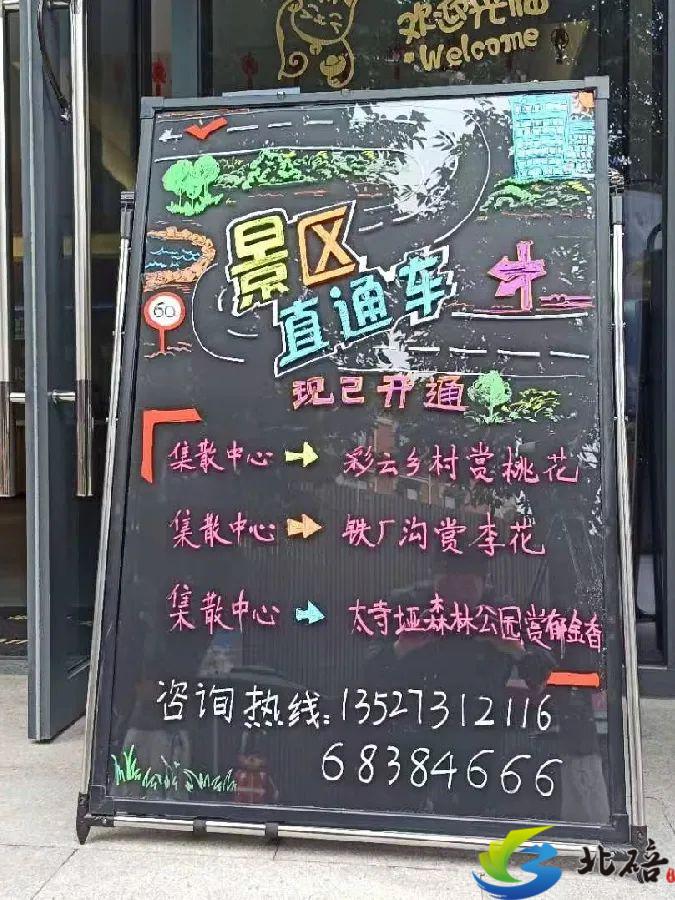 欢迎光临
Welcome
60
景区
直通车
现已开通
集散中心→彩云乡村赏桃花
集散中心→铁厂沟赏李花
集散中心→太寺垭森林公园赏郁金香
咨询热线:13527312116
68384666
北碚